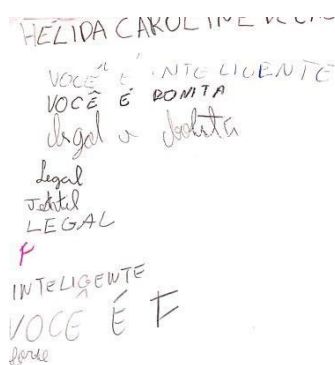 HÉLIDA CAROLINE
VOCÊ É INTELIGENTE
VOCÊ É BONITA
legal e
Legal
LEGAL
F
INTELIGENTE
VOCÊ É F